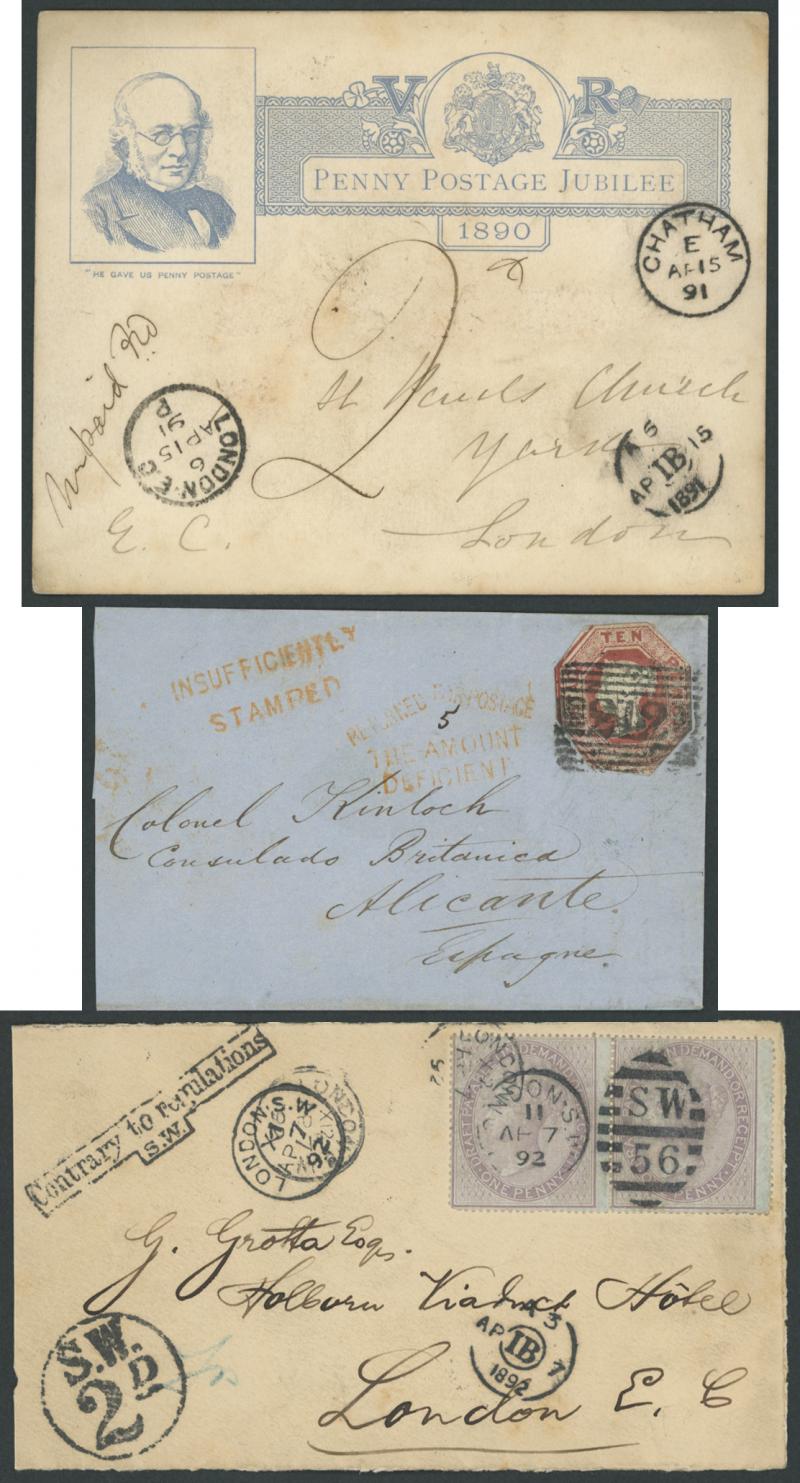 V R
PENNY POSTAGE JUBILEE
1890
"HE GAVE US PENNY POSTAGE"
CHATHAM
E
AP 15
91
2
Unpaid
St Pauls Church
York
LONDON · E C
6
AP 15
91
P
5 15
IB
AP
1891
E. C. London
INSUFFICIENTLY
STAMPED
TEN
5
POSTAGE
THE AMOUNT
DEFICIENT
Colonel Kinloch
Consulado Britanica
Alicante.
Espagne.
Contrary to regulations
S.W.
LONDON · S.W
AP 7
92
LONDON
LONDON · S.W
11
AP 7
92
SW
56
DRAFT PAYABLE ON DEMAND OR RECEIPT
ONE PENNY
ON DEMAND OR RECEIPT
PENNY
G. Grotta Esq.
Holborn Viaduct Hôtel
5
AP IB 7
1892
S.W.
2D
London E. C